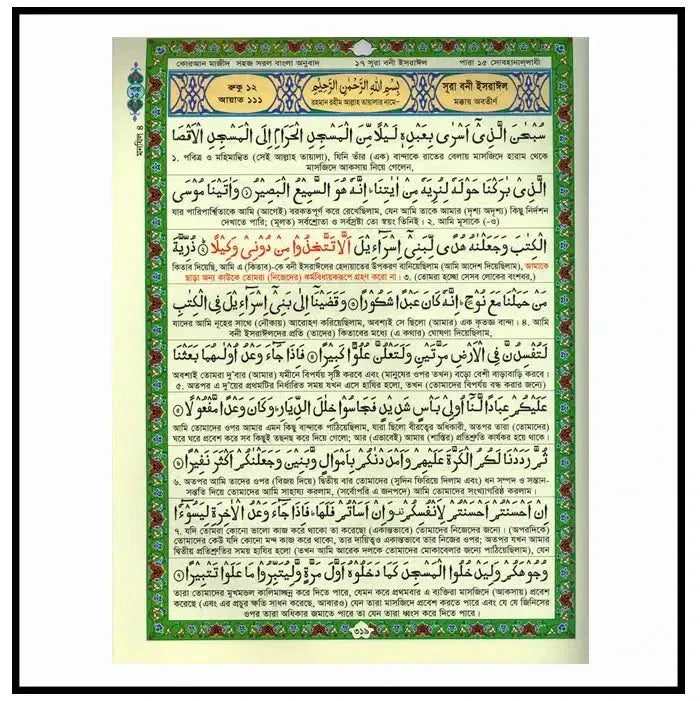 কোরআন মাজীদ সহজ সরল বাংলা অনুবাদ ১৭ সূরা বনী ইসরাঈল পারা ১৫ সোবহানাল্লাযী
পারা ১৫
মনযিল ৪
রুকু ১২
আয়াত ১১১
بِسْمِ اللهِ الرَّحْمٰنِ الرَّحِيْمِ
রহমান রহীম আল্লাহ তায়ালার নামে-
সূরা বনী ইসরাঈল
মক্কায় অবতীর্ণ
سُبْحٰنَ الَّذِيْٓ اَسْرٰى بِعَبْدِهٖ لَيْلًا مِّنَ الْمَسْجِدِ الْحَرَامِ اِلَى الْمَسْجِدِ الْاَقْصَا
১. পবিত্র ও মহিমান্বিত (সেই আল্লাহ তায়ালা), যিনি তাঁর (এক) বান্দাকে রাতের বেলায় মাসজিদে হারাম থেকে
মাসজিদে আকসায় নিয়ে গেলেন,
الَّذِيْ بٰرَكْنَا حَوْلَهٗ لِنُرِيَهٗ مِنْ اٰيٰتِنَا ؕ اِنَّهٗ هُوَ السَّمِيْعُ الْبَصِيْرُ ﴿۱﴾ وَاٰتَيْنَا مُوْسَى
যার পারিপার্শ্বিকতাকে আমি (আগেই) বরকতপূর্ণ করে রেখেছিলাম, যেন আমি তাকে আমার (দৃশ্য অদৃশ্য) কিছু নিদর্শন
দেখাতে পারি; (মূলত) সর্বশ্রোতা ও সর্বদ্রষ্টা তো স্বয়ং তিনিই। ২. আমি মূসাকে (-ও)
الْكِتٰبَ وَجَعَلْنٰهُ هُدًى لِّبَنِيْٓ اِسْرَآءِيْلَ اَلَّا تَتَّخِذُوْا مِنْ دُوْنِيْ وَكِيْلًا ﴿۲﴾ ذُرِّيَّةَ
কিতাব দিয়েছি, আমি এ (কিতাব)-কে বনী ইসরাঈলের হেদায়াতের উপকরণ বানিয়েছিলাম (আমি আদেশ দিয়েছিলাম), আমাকে
ছাড়া অন্য কাউকে তোমরা (নিজেদের) কর্মবিধায়করূপে গ্রহণ করো না। ৩. (তোমরা হচ্ছো সেসব লোকের বংশধর,)
مَنْ حَمَلْنَا مَعَ نُوْحٍ ؕ اِنَّهٗ كَانَ عَبْدًا شَكُوْرًا ﴿۳﴾ وَقَضَيْنَآ اِلٰى بَنِيْٓ اِسْرَآءِيْلَ فِي الْكِتٰبِ
যাদের আমি নূহের সাথে (নৌকায়) আরোহণ করিয়েছিলাম, অবশ্যই সে ছিলো (আমার) এক কৃতজ্ঞ বান্দা। ৪. আমি
বনী ইসরাঈলদের প্রতি (তাদের) কিতাবের মধ্যে (এ কথার) ঘোষণা দিয়েছিলাম,
لَتُفْسِدُنَّ فِي الْاَرْضِ مَرَّتَيْنِ وَلَتَعْلُنَّ عُلُوًّا كَبِيْرًا ﴿۴﴾ فَاِذَا جَآءَ وَعْدُ اُوْلٰىهُمَا بَعَثْنَا
অবশ্যই তোমরা দু'বার (আমার) যমীনে বিপর্যয় সৃষ্টি করবে এবং (মানুষের ওপর তখন) বড়ো বেশী বাড়াবাড়ি করবে।
৫. অতপর এ দু'য়ের প্রথমটির নির্ধারিত সময় যখন এসে হাযির হলো, তখন (তোমাদের বিপর্যয় বন্ধ করার জন্যে)
عَلَيْكُمْ عِبَادًا لَّنَآ اُولِيْ بَاْسٍ شَدِيْدٍ فَجَاسُوْا خِلٰلَ الدِّيَارِ ؕ وَكَانَ وَعْدًا مَّفْعُوْلًا ﴿۵﴾
আমি তোমাদের ওপর আমার এমন কিছু বান্দাকে পাঠিয়েছিলাম, যারা ছিলো বীরত্বের অধিকারী, অতপর তারা (তোমাদের)
ঘরে ঘরে প্রবেশ করে সব কিছুই তছনছ করে দিয়ে গেলো; আর (এভাবেই) আমার (শাস্তির) প্রতিশ্রুতি কার্যকর হয়ে থাকে।
ثُمَّ رَدَدْنَا لَكُمُ الْكَرَّةَ عَلَيْهِمْ وَاَمْدَدْنٰكُمْ بِاَمْوَالٍ وَّبَنِيْنَ وَجَعَلْنٰكُمْ اَكْثَرَ نَفِيْرًا ﴿۶﴾
৬. অতপর আমি তাদের ওপর (বিজয় দিয়ে) দ্বিতীয় বার তোমাদের (সুদিন ফিরিয়ে দিলাম এবং) ধন সম্পদ ও সন্তান-
সন্ততি দিয়ে তোমাদের আমি সাহায্য করলাম, (সর্বোপরি এ জনপদে) আমি তোমাদের সংখ্যাগরিষ্ঠ করলাম।
اِنْ اَحْسَنْتُمْ اَحْسَنْتُمْ لِاَنْفُسِكُمْ ۫ وَاِنْ اَسَاْتُمْ فَلَهَا ؕ فَاِذَا جَآءَ وَعْدُ الْاٰخِرَةِ لِيَسُوْٓءٗا
৭. যদি তোমরা কোনো ভালো কাজ করে থাকো তা করেছো (একান্তভাবে) তোমাদের নিজেদের জন্যে। (অপরদিকে)
তোমাদের কেউ যদি কোনো মন্দ কাজ করে থাকো, তার দায়িত্বও একান্তভাবে তার নিজের ওপর; অতপর যখন আমার
দ্বিতীয় প্রতিশ্রুতির সময় হাযির হলো (তখন আমি আরেক দলকে তোমাদের মোকাবেলার জন্যে পাঠিয়েছিলাম), যেন
وُجُوْهَكُمْ وَلِيَدْخُلُوا الْمَسْجِدَ كَمَا دَخَلُوْهُ اَوَّلَ مَرَّةٍ وَّلِيُتَبِّرُوْا مَا عَلَوْا تَتْبِيْرًا ﴿۷﴾
তারা তোমাদের মুখমন্ডল কালিমাচ্ছন্ন করে দিতে পারে, যেমন করে প্রথমবার এ ব্যক্তিরা মাসজিদে (আকসায়) প্রবেশ
করেছে (এবং এর প্রচুর ক্ষতি সাধন করেছে, আবারও) যেন তারা মাসজিদে প্রবেশ করতে পারে এবং যে যে জিনিসের
ওপর তারা অধিকার জমাতে পারে তা যেন তারা ধ্বংস করে দিতে পারে।
৩১৯